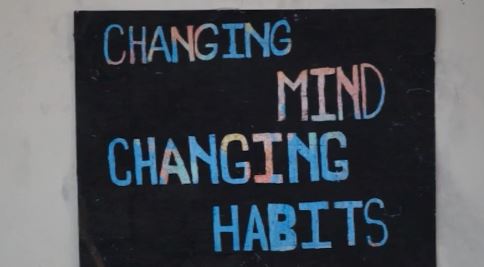 CHANGING
MIND
CHANGING
HABITS